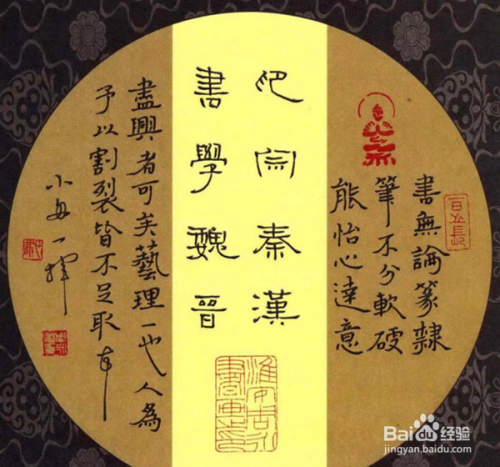 書無論篆隸
筆不分軟硬
能怡心達意
印宗秦漢
書學魏晉
盡興者可矣藝理一也人為
予以割裂皆不足取
一揮
Baidu经验
jingyan.baidu.com